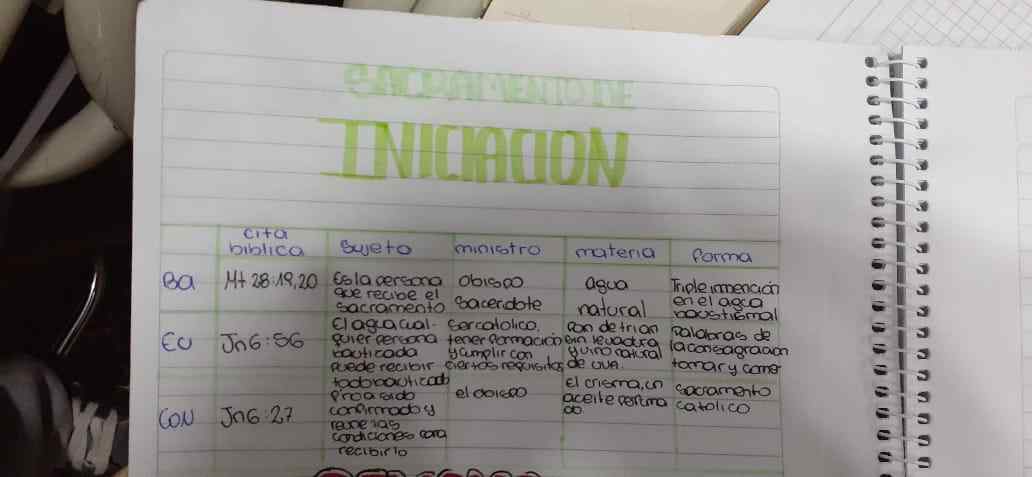 SACRAMENTO DE
INICIACION
cita biblica sujeto ministro materia forma
Ba Mt 28:19,20 Es la persona que recibe el sacramento obispo sacerdote agua natural Triple inmención en el agua baustismal
EU Jn6:56 El agua cual-quier persona bauticada puede recibir Sercatolico, tener formación y cumplir con ciertos requisitos Pan de trian sin levadura y vino natural de uva. Palabras de la consagración tomar y comer
CON Jn6:27 todo bauticado confirmado y reune las condiciones para recibirlo el obispo el crisma, un aceite perfuma do. Sacramento catolico